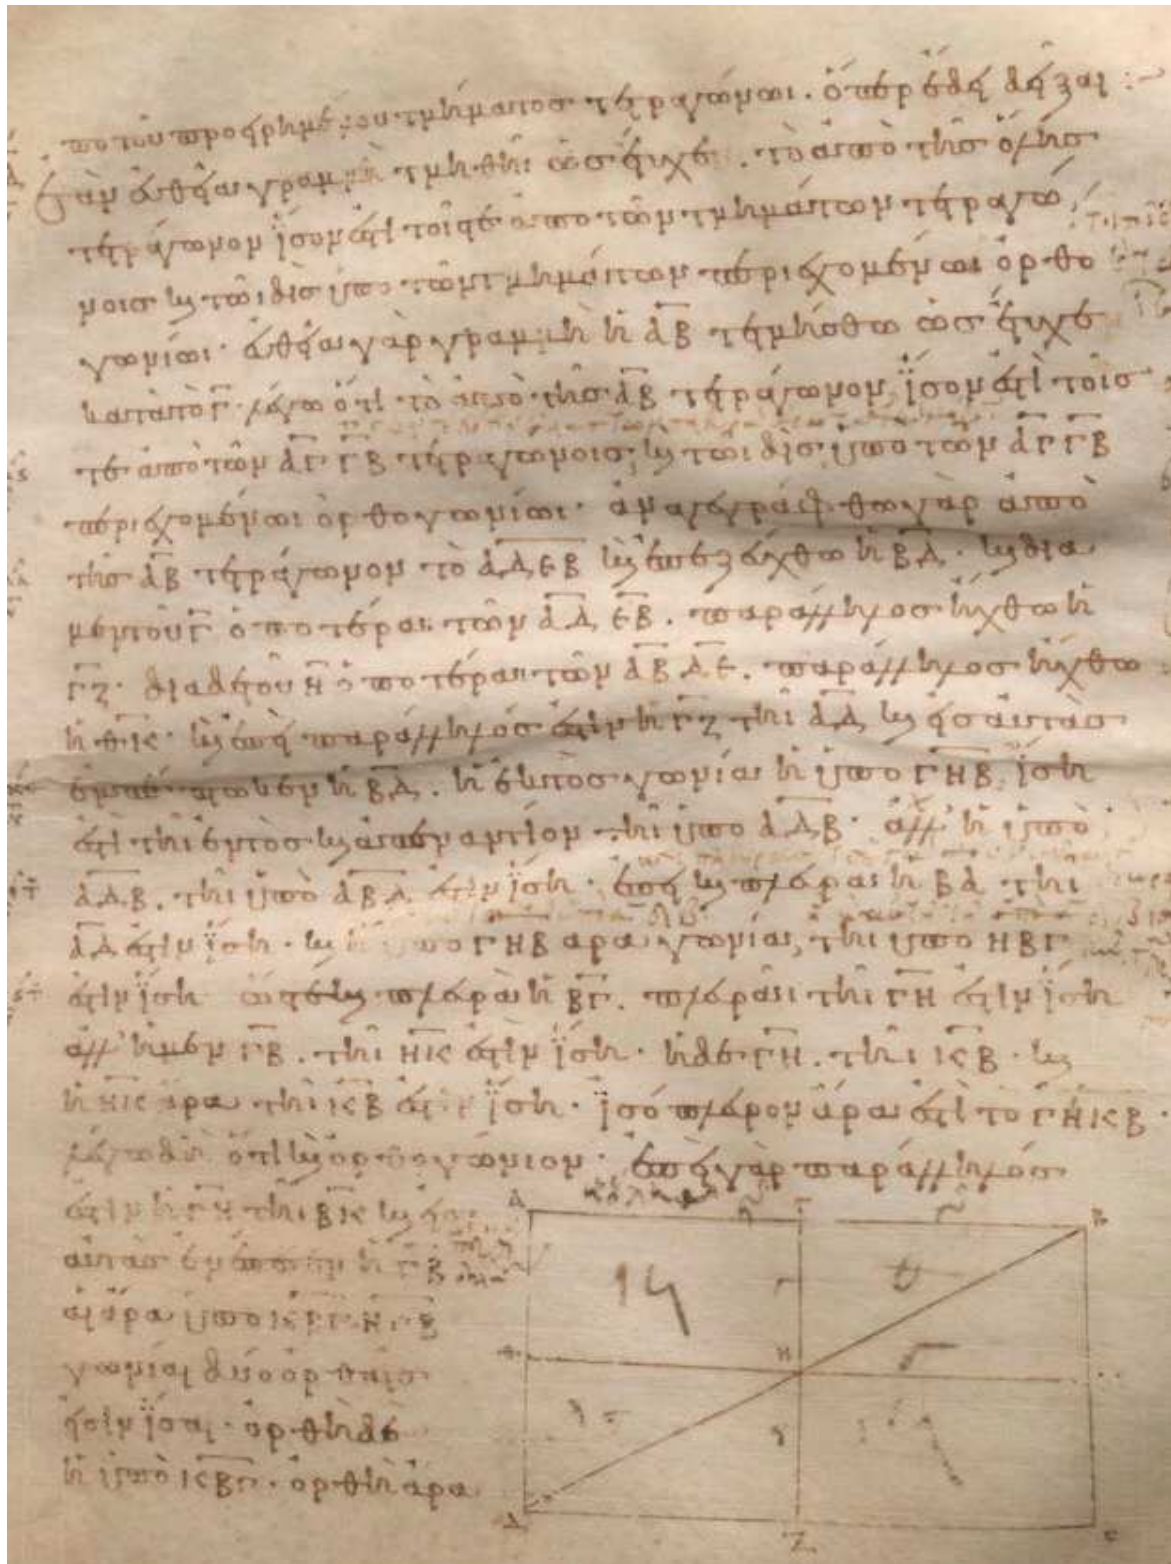 πὸ τοῦ προειρημένου τμήματος τετραγώνωι. ὅπερ ἔδει δεῖξαι :~
Ἐὰν εὐθεῖα γραμμὴ τμηθῆι ὡς ἔτυχε. τὸ ἀπὸ τῆς ὅλης
τετράγωνον ἴσον ἐστὶ τοῖς τε ἀπὸ τῶν τμημάτων τετραγώ
νοις καὶ τῶι δὶς ὑπὸ τῶν τμημάτων περιεχομένωι ὀρθο
γωνίωι· εὐθεῖα γὰρ γραμμὴ ἡ ΑΒ τετμήσθω ὡς ἔτυχε
κατὰ τὸ Γ· λέγω ὅτι τὸ ἀπὸ τῆς ΑΒ τετράγωνον ἴσον ἐστὶ τοῖς
τε ἀπὸ τῶν ΑΓ ΓΒ τετραγώνοις καὶ τῶι δὶς ὑπὸ τῶν ΑΓ ΓΒ
περιεχομένωι ὀρθογωνίωι· ἀναγεγράφθω γὰρ ἀπὸ
τῆς ΑΒ τετράγωνον τὸ ΑΔΕΒ καὶ ἐπεζεύχθω ἡ ΒΔ· καὶ διὰ
μὲν τοῦ Γ ὁποτέραι τῶν ΑΔ ΕΒ. παράλληλος ἤχθω ἡ
ΓΖ· διὰ δὲ τοῦ Η ὁποτέραι τῶν ΑΒ ΔΕ. παράλληλος ἤχθω
ἡ ΘΚ· καὶ ἐπεὶ παράλληλός ἐστιν ἡ ΓΖ τῆι ΑΔ καὶ εἰς αὐτὰς
ἐμπέπτωκεν ἡ ΒΔ. ἡ ἐκτὸς γωνία ἡ ὑπὸ ΓΗΒ ἴση
ἐστὶ τῆι ἐντὸς καὶ ἀπεναντίον τῆι ὑπὸ ΑΔΒ· ἀλλ' ἡ ὑπὸ
ΑΔΒ. τῆι ὑπὸ ΑΒΔ ἐστιν ἴση· ἐπεὶ καὶ πλευρὰ ἡ ΒΑ τῆι
ΑΔ ἐστιν ἴση· καὶ ἡ ὑπὸ ΓΗΒ ἄρα γωνία τῆι ὑπὸ ΗΒΓ
ἐστιν ἴση ὥστε καὶ πλευρὰ ἡ ΒΓ. πλευρᾶι τῆι ΓΗ ἐστιν ἴση
ἀλλ' ἡ μὲν ΓΒ. τῆι ΗΚ ἐστιν ἴση· ἡ δὲ ΓΗ. τῆι ΚΒ· καὶ
ἡ ΗΚ ἄρα τῆι ΚΒ ἐστιν ἴση· ἰσόπλευρον ἄρα ἐστὶ τὸ ΓΗΚΒ·
λέγω δὴ ὅτι καὶ ὀρθογώνιον· ἐπεὶ γὰρ παράλληλός
ἐστιν ἡ ΓΗ τῆι ΒΚ καὶ εἰς
αὐτὰς ἐμπέπτωκεν ἡ ΓΒ
αἱ ἄρα ὑπὸ ΚΒΓ ΗΓΒ
γωνίαι δύο ὀρθαῖς
εἰσιν ἴσαι· ὀρθὴ δὲ
ἡ ὑπὸ ΚΒΓ· ὀρθὴ ἄρα
Α Γ Β
Η
Δ Ζ Ε